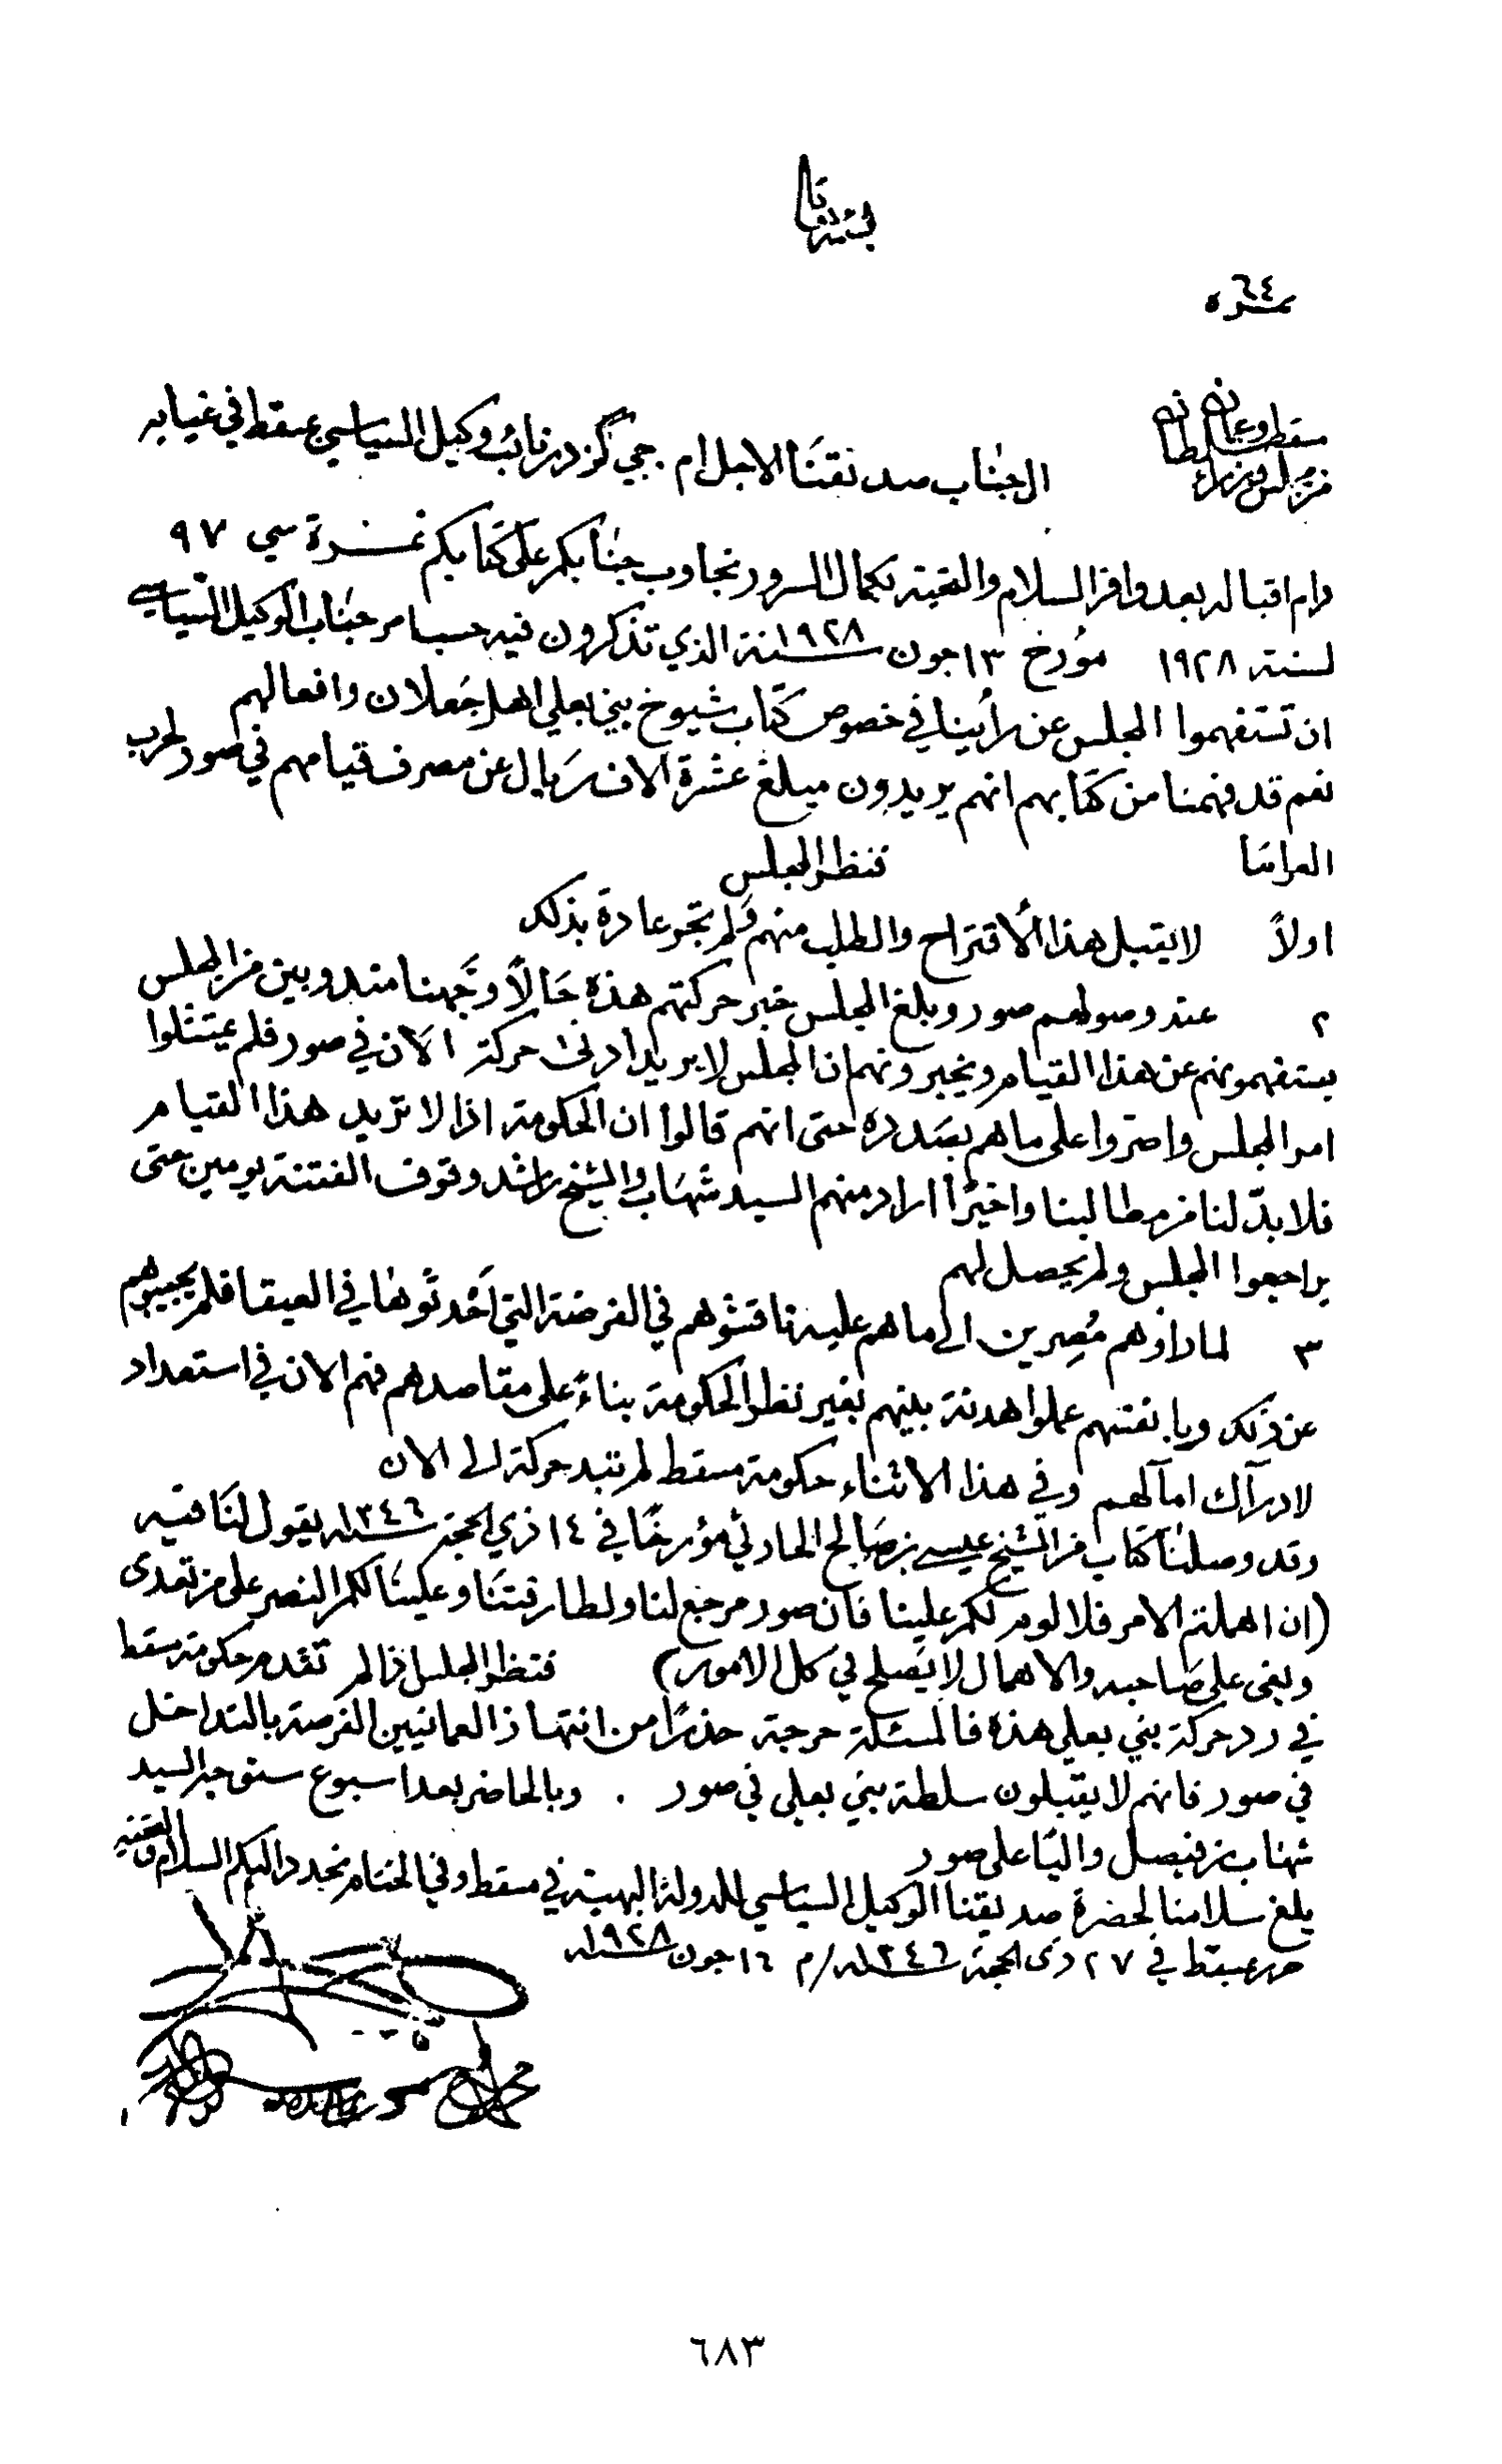 نمرة ٦٤
من مجلس وزراء سلطانة مسقط وعمان
الى جناب صديقنا الاجل ام . جي گزدر نائب وكيل السياسي بمسقط في غيابه
دام اقباله بعد وافر السلام والتحية بكمال السرور نجاوب جنابكم على كتابكم نمرة سي ٩٧
لسنة ١٩٢٨ مؤرخ ١٣ جون سنة ١٩٢٨ الذي تذكرون فيه حسبامر جناب الوكيل السياسي
ان تستفهموا المجلس عن رأينا في خصوص كتاب شيوخ بني بعلي اهل جعلان وافعالهم
نعم قد فهمنا من كتابهم انهم يريدون مبلغ عشرة الاف ريال عن مصرف قيامهم في صور لحرب
العرامَا فنظر المجلس
اولاً لا يقبل هذا الأقتراح والطلب منهم وَلم تجر عادة بذلك
٢ عند وصولهم صور وبلغ المجلس خبر حركتهم هذه حَالاً وَجَّهنا مندوبين من المجلس
يستفهمونهم عن هذا القيام ويخبرونهم ان المجلس لا يريد ادنى حركة الان في صور فلم يمتثلوا
امر المجلس واصروا على ما هم بصَدده حتى انهم قالوا ان الحكومة اذا لا تريد هذا القيام
فلا بدّ لنا من مطالبنا واخيرًا اراد منهم السيد شهاب والشيخ راشد وقوف الفتنة يومين حتى
يراجعوا المجلس ولم يحصل لهم
٣ لما راوهم مُصِرين الى ما هم عليه ناقشوهم في الفرضة التي اَحْدثوهَا في العيقا فلم يجيبوهم
عن ذلك وبانفسهم عملوا هدنة بينهم بغير نظر الحكومة بناءً على مقاصدهم فهم الان في استعداد
لادرآك امآلهم وفي هذا الاثناء حكومة مسقط لم تبد حركة الى الان
وقد وصلنا كتاب من الشيخ عيسى بن صَالح الحارثي مؤرخًا في ١٤ ذي الحجة سنة ١٣٤٦ يقول لنَا فيه
(ان اهملتم الامر فلا لوم لكم علينا فان صور مرجع لنا ولطارفتنَا وعلينا لكم النصر على من تعدى
وبغى على صَاحبه والاهمال لا يَصلح في كل الامور) فنظر المجلس اذا لم تقدم حكومة مسقط
في رد حركة بني بعلي هذه فالمسئلة حرجة حذرًا من انتهاز العمانيين الفرصة بالتداخل
في صور فانهم لا يقبلون سلطة بني بعلي في صور . وبالحاضر بعد اسبوع سنوجه السيد
شهاب بن فيصل واليًا على صور
يلغ سلامنا لحضرة صديقنا الوكيل السياسي للدولة البهية في مسقط وفي الختام نجدد اليكم السلام والتحية
حرر بمسقط في ٢٧ ذى الحجة سنة ١٣٤٦/م ١٦ جون سنة ١٩٢٨
٦٨٣